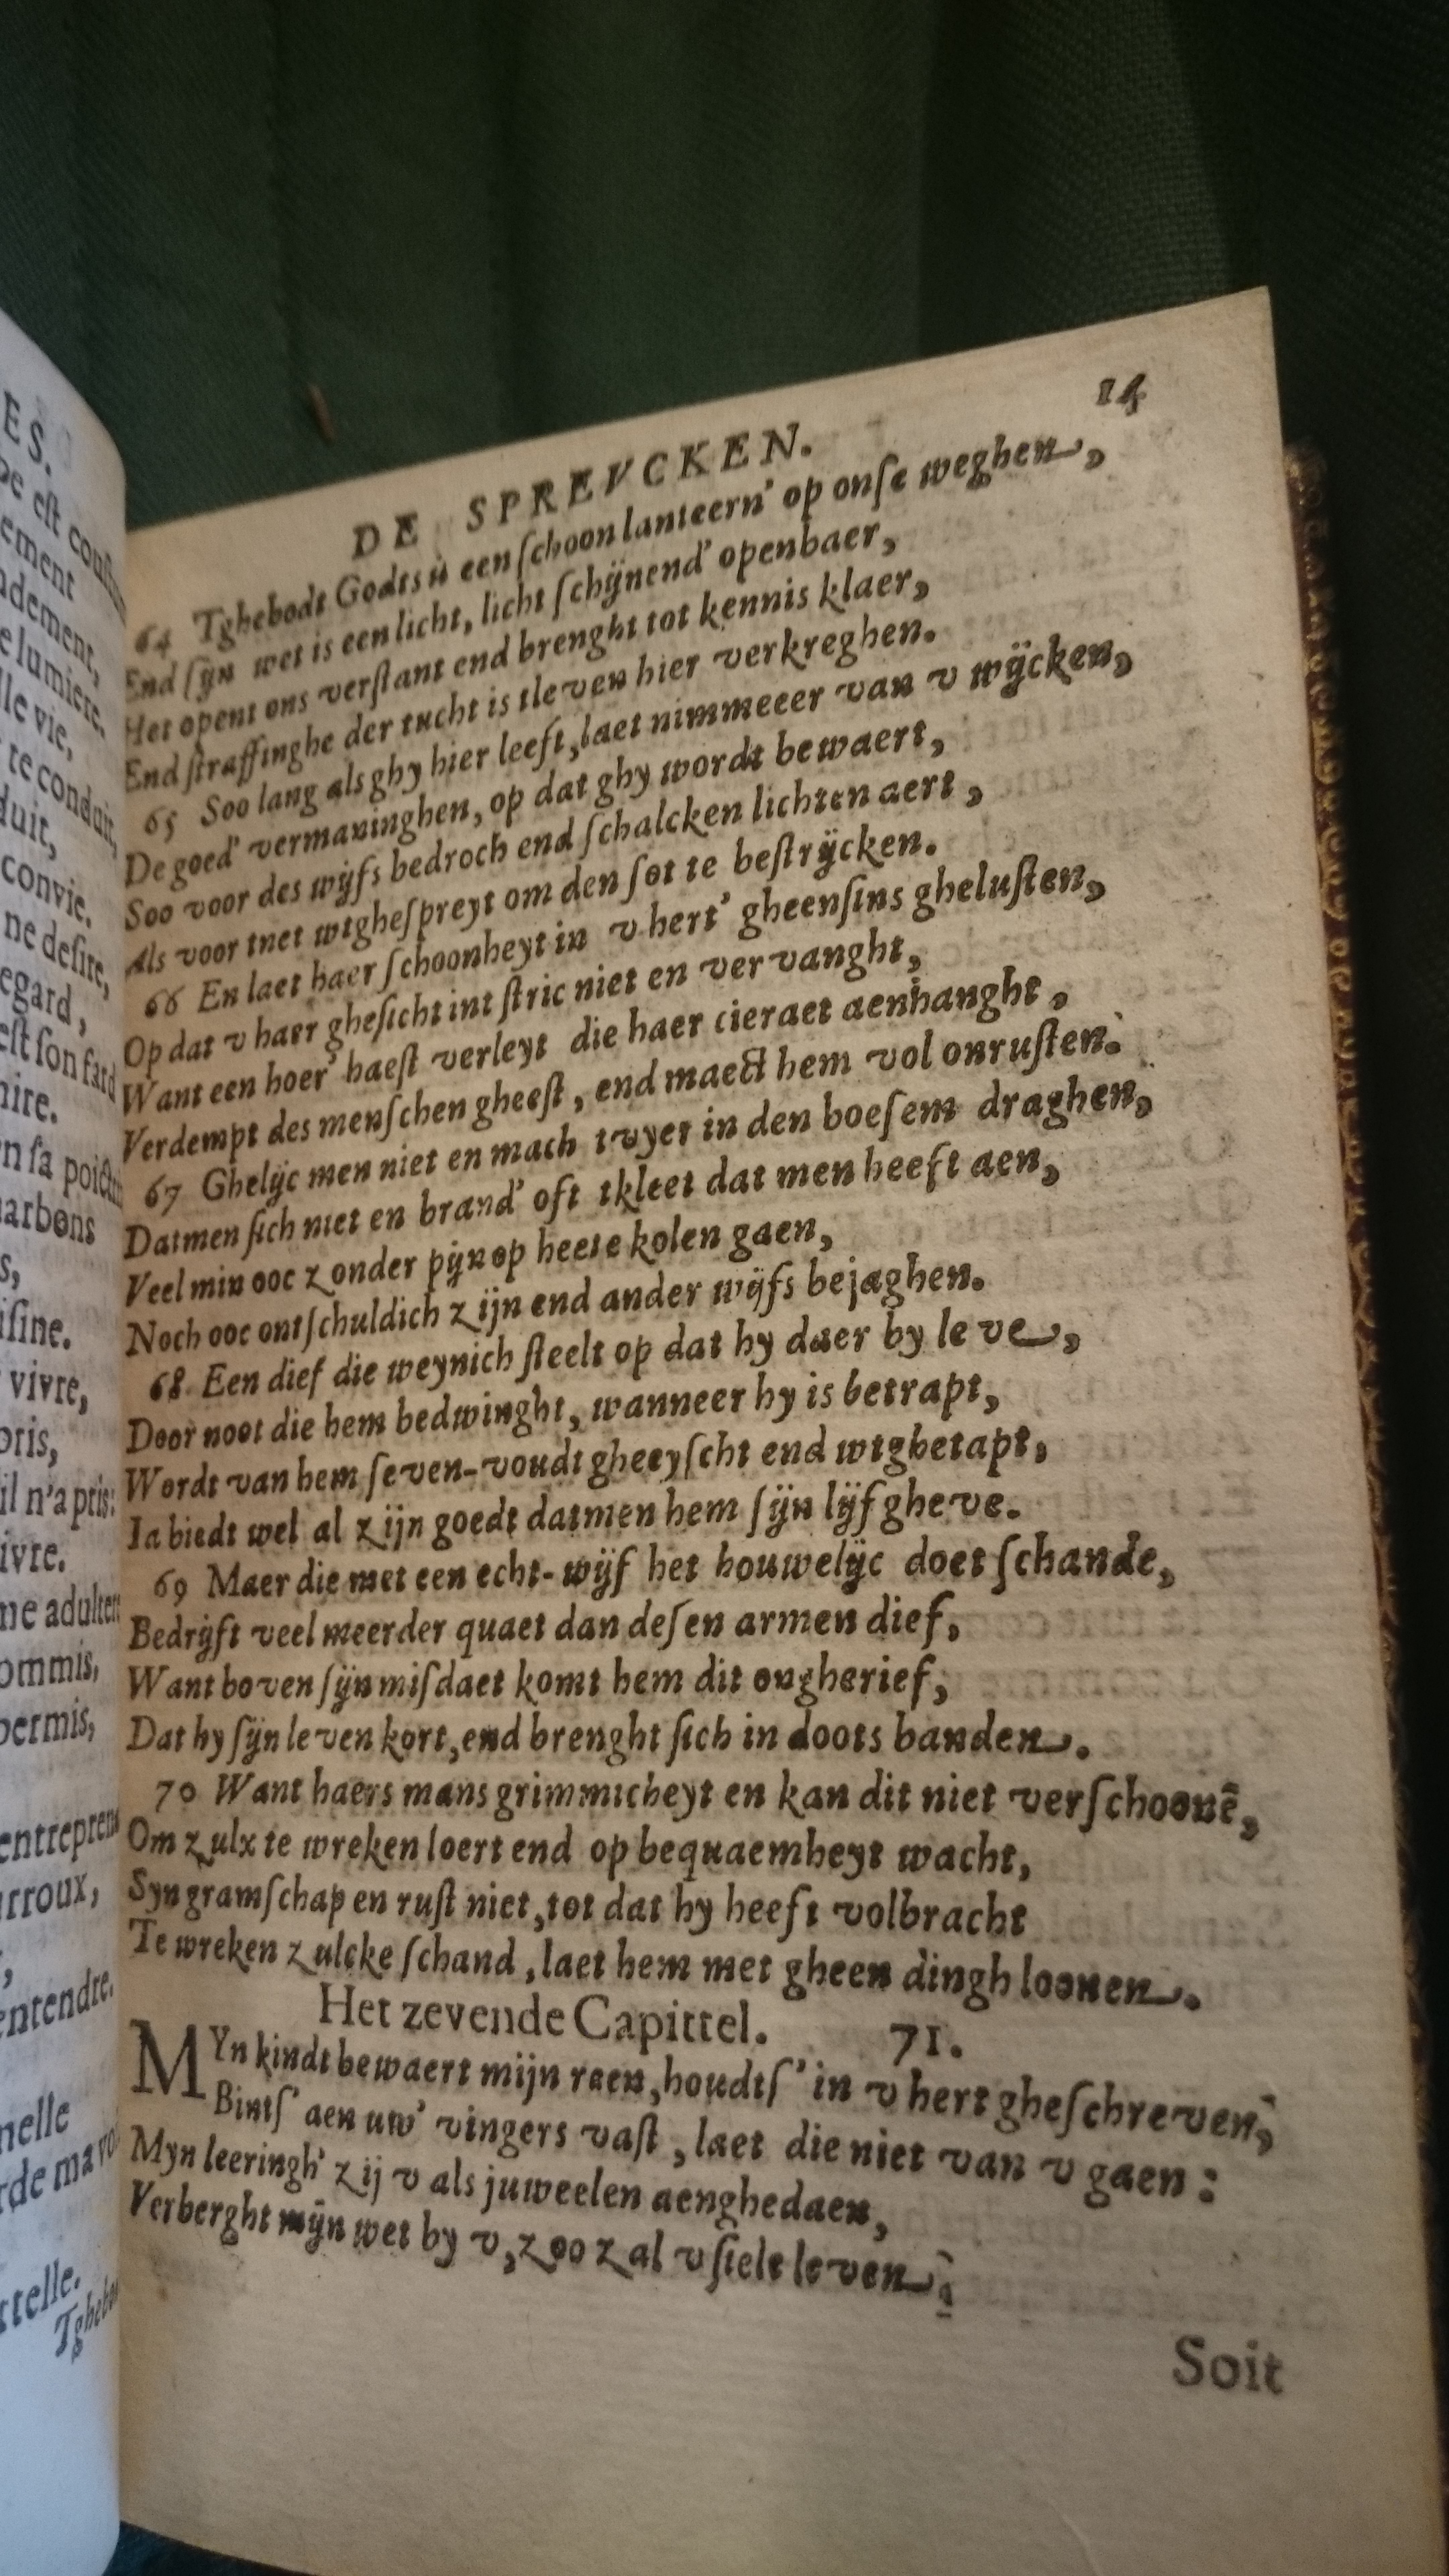 ES.
ement
dement,
e lumiere.
lle vie,
te conduit,
duit,
convie.
ne desire,
egard,
est son fard
n sa
arbons
s,
vivre,
il n'a pris:
ivre.
ne adulter
ommis,
permis,
entrepren
rroux,
entendre.
nelle
rde ma vo
Tghebo
14
DE SPREVCKEN.
64 Tghebodt Godts is een ſchoon lanteern' op onſe weghen,
End ſijn wet is een licht, licht ſchijnend' openbaer,
Het opent ons verſtant end brenght tot kennis klaer,
End ſtraffinghe der tucht is tleven hier verkreghen.
65 Soo lang als ghy hier leeft, laet nimmeeer van v wijcken,
De goed' vermaninghen, op dat ghy wordt bewaert,
Soo voor des wijfs bedroch end ſchalcken lichten aert,
Als voor tnet wtgheſpreyt om den ſot te beſtrijcken.
66 En laet haer ſchoonheyt in v hert' gheenſins gheluſten,
Op dat v haer gheſicht int ſtric niet en vervanght,
Want een hoer' haeſt verleyt die haer cieraet aenhanght,
Verdempt des menſchen gheeſt, end maect hem vol onruſten.
67 Ghelijc men niet en mach tvyer in den boeſem draghen,
Datmen ſich niet en brand' oft tkleet dat men heeft aen,
Veel min ooc zonder pijn op heete kolen gaen,
Noch ooc ontſchuldich zijn end ander wijfs bejaghen.
68 Een dief die weynich ſteelt op dat hy daer by leve,
Door noot die hem bedwinght, wanneer hy is betrapt,
Wordt van hem ſeven-voudt gheeyſcht end wtghetapt,
Ia biedt wel al zijn goedt datmen hem ſijn lijf gheve.
69 Maer die met een echt-wijf het houwelijc doet ſchande,
Bedrijft veel meerder quaet dan deſen armen dief,
Want boven ſijn miſdaet komt hem dit ongherief,
Dat hy ſijn leven kort, end brenght ſich in doots banden.
70 Want haers mans grimmicheyt en kan dit niet verſchoonē,
Om zulx te wreken loert end op bequaemheyt wacht,
Syn gramſchap en ruſt niet, tot dat hy heeft volbracht
Te wreken zulcke ſchand, laet hem met gheen dingh loonen.
Het zevende Capittel. 71.
MYn kindt bewaert mijn reen, houdtſ' in v hert gheſchreven,
Bintſ' aen uw' vingers vaſt, laet die niet van v gaen:
Myn leeringh' zij v als juweelen aenghedaen,
Verberght mijn wet by v, zoo zal v ſiele leven.
Soit